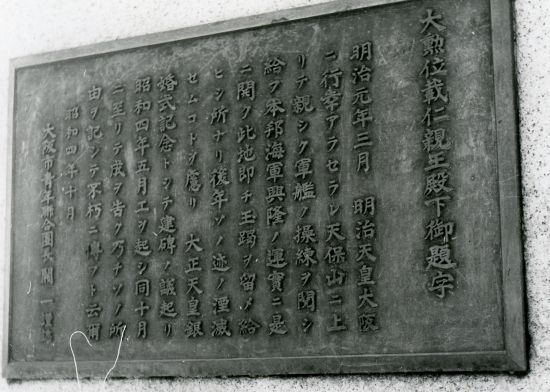 大勲位載仁親王殿下御題字
明治元年三月 明治天皇大阪
ニ行幸アラセラレ天保山ニ上
リテ親シク軍艦ノ操練ヲ閲シ
給フ本邦海軍興隆ノ運實ニ是
ニ関ク此地即チ玉躅ヲ留メ給
ヒシ所ナリ後年ソノ迹ノ湮滅
セムコトヲ慮リ 大正天皇銀
婚式記念トシテ建碑ノ議起リ
昭和四年五月工ヲ起シ同十月
ニ至リテ成ヲ告ク乃チソノ所
由ヲ記シテ不朽ニ傳フト云爾
昭和四年十月
大阪市青年聯合團長 關 一